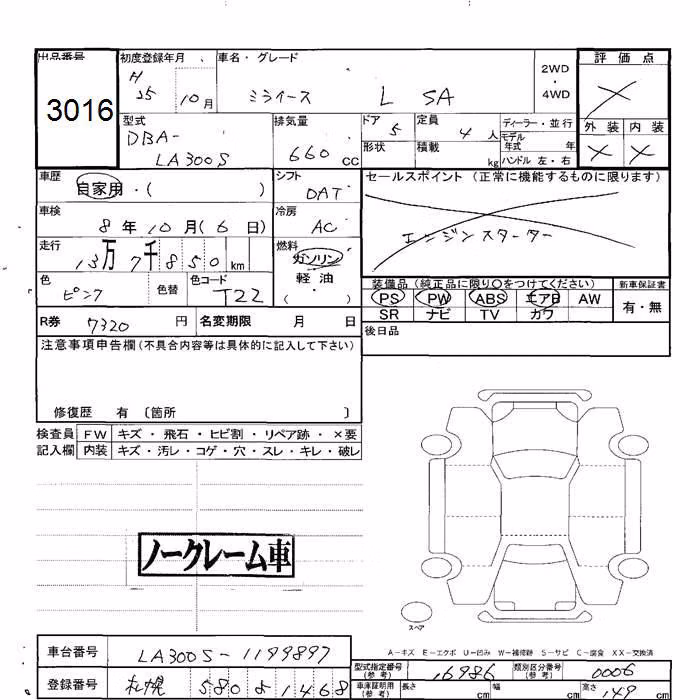 出品番号
3016
初度登録年月
H
25 10月
車名・グレード
ミライース L SA
2WD
・
4WD
評価点
X
外装 内装
X X
型式
DBA-
LA300S
排気量
660 cc
ドア 5
形状
定員 4 人
積載 kg
ディーラー・並行
モデル
年式 年
ハンドル 左・右
車歴
自家用・( )
シフト
DAT
セールスポイント (正常に機能するものに限ります)
エンジンスターター
車検
8年10月(6日)
冷房
AC
走行
13万7千850km
燃料
ガソリン
軽油
( )
色
ピンク
色替
色コード
T22
装備品(純正品に限り〇をつけてください)
PS PW ABS エアB AW
SR ナビ TV カワ
新車保証書
有・無
R券 7320 円
名変期限 月 日
後日品
注意事項申告欄(不具合内容等は具体的に記入して下さい)
修復歴 有 〔箇所 〕
検査員 FW キズ・飛石・ヒビ割・リペア跡・×要
記入欄 内装 キズ・汚レ・コゲ・穴・スレ・キレ・破レ
ノークレーム車
スペア
A-キズ E-エクボ U-凹み W-補修跡 S-サビ C-腐食 XX-交換済
車台番号 LA300S-1199897
型式指定番号
(参考)
16986
類別区分番号
(参考)
0006
登録番号 札幌 580 よ 1468
車庫証明用
(参考)
長さ cm
幅 cm
高さ 149 cm